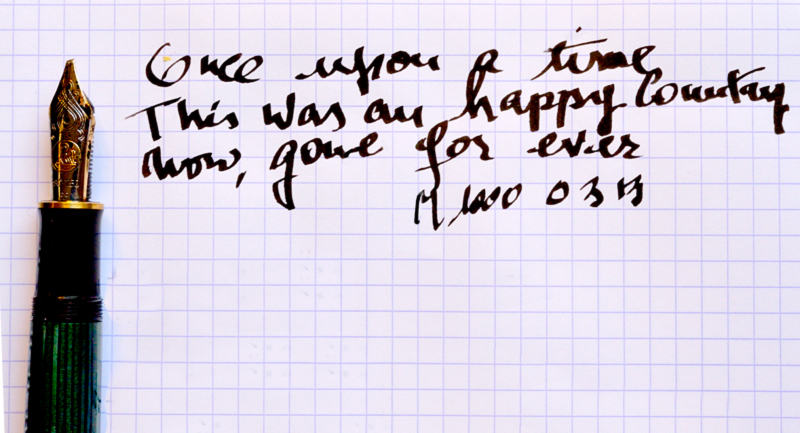 Once upon a time
This was an happy Country
now, gone for ever
M 1000 03B